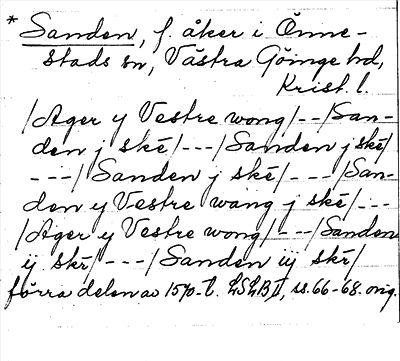 * Sanden, f. åker i Önne-
stads sn, Västra Göinge hd,
Krist. l.
/Ager y Vestre wong/--/San-
den j skē/---/Sanden j skē/
---/Sanden j skē/---/San-
den y Vestre wang j skē/---
/Ager y Vestre wong/---/Sanden
ij skr̄/---/Sanden iij skr̄/
förra delen av 1570-t. LSLB II, ss. 66-68. orig.